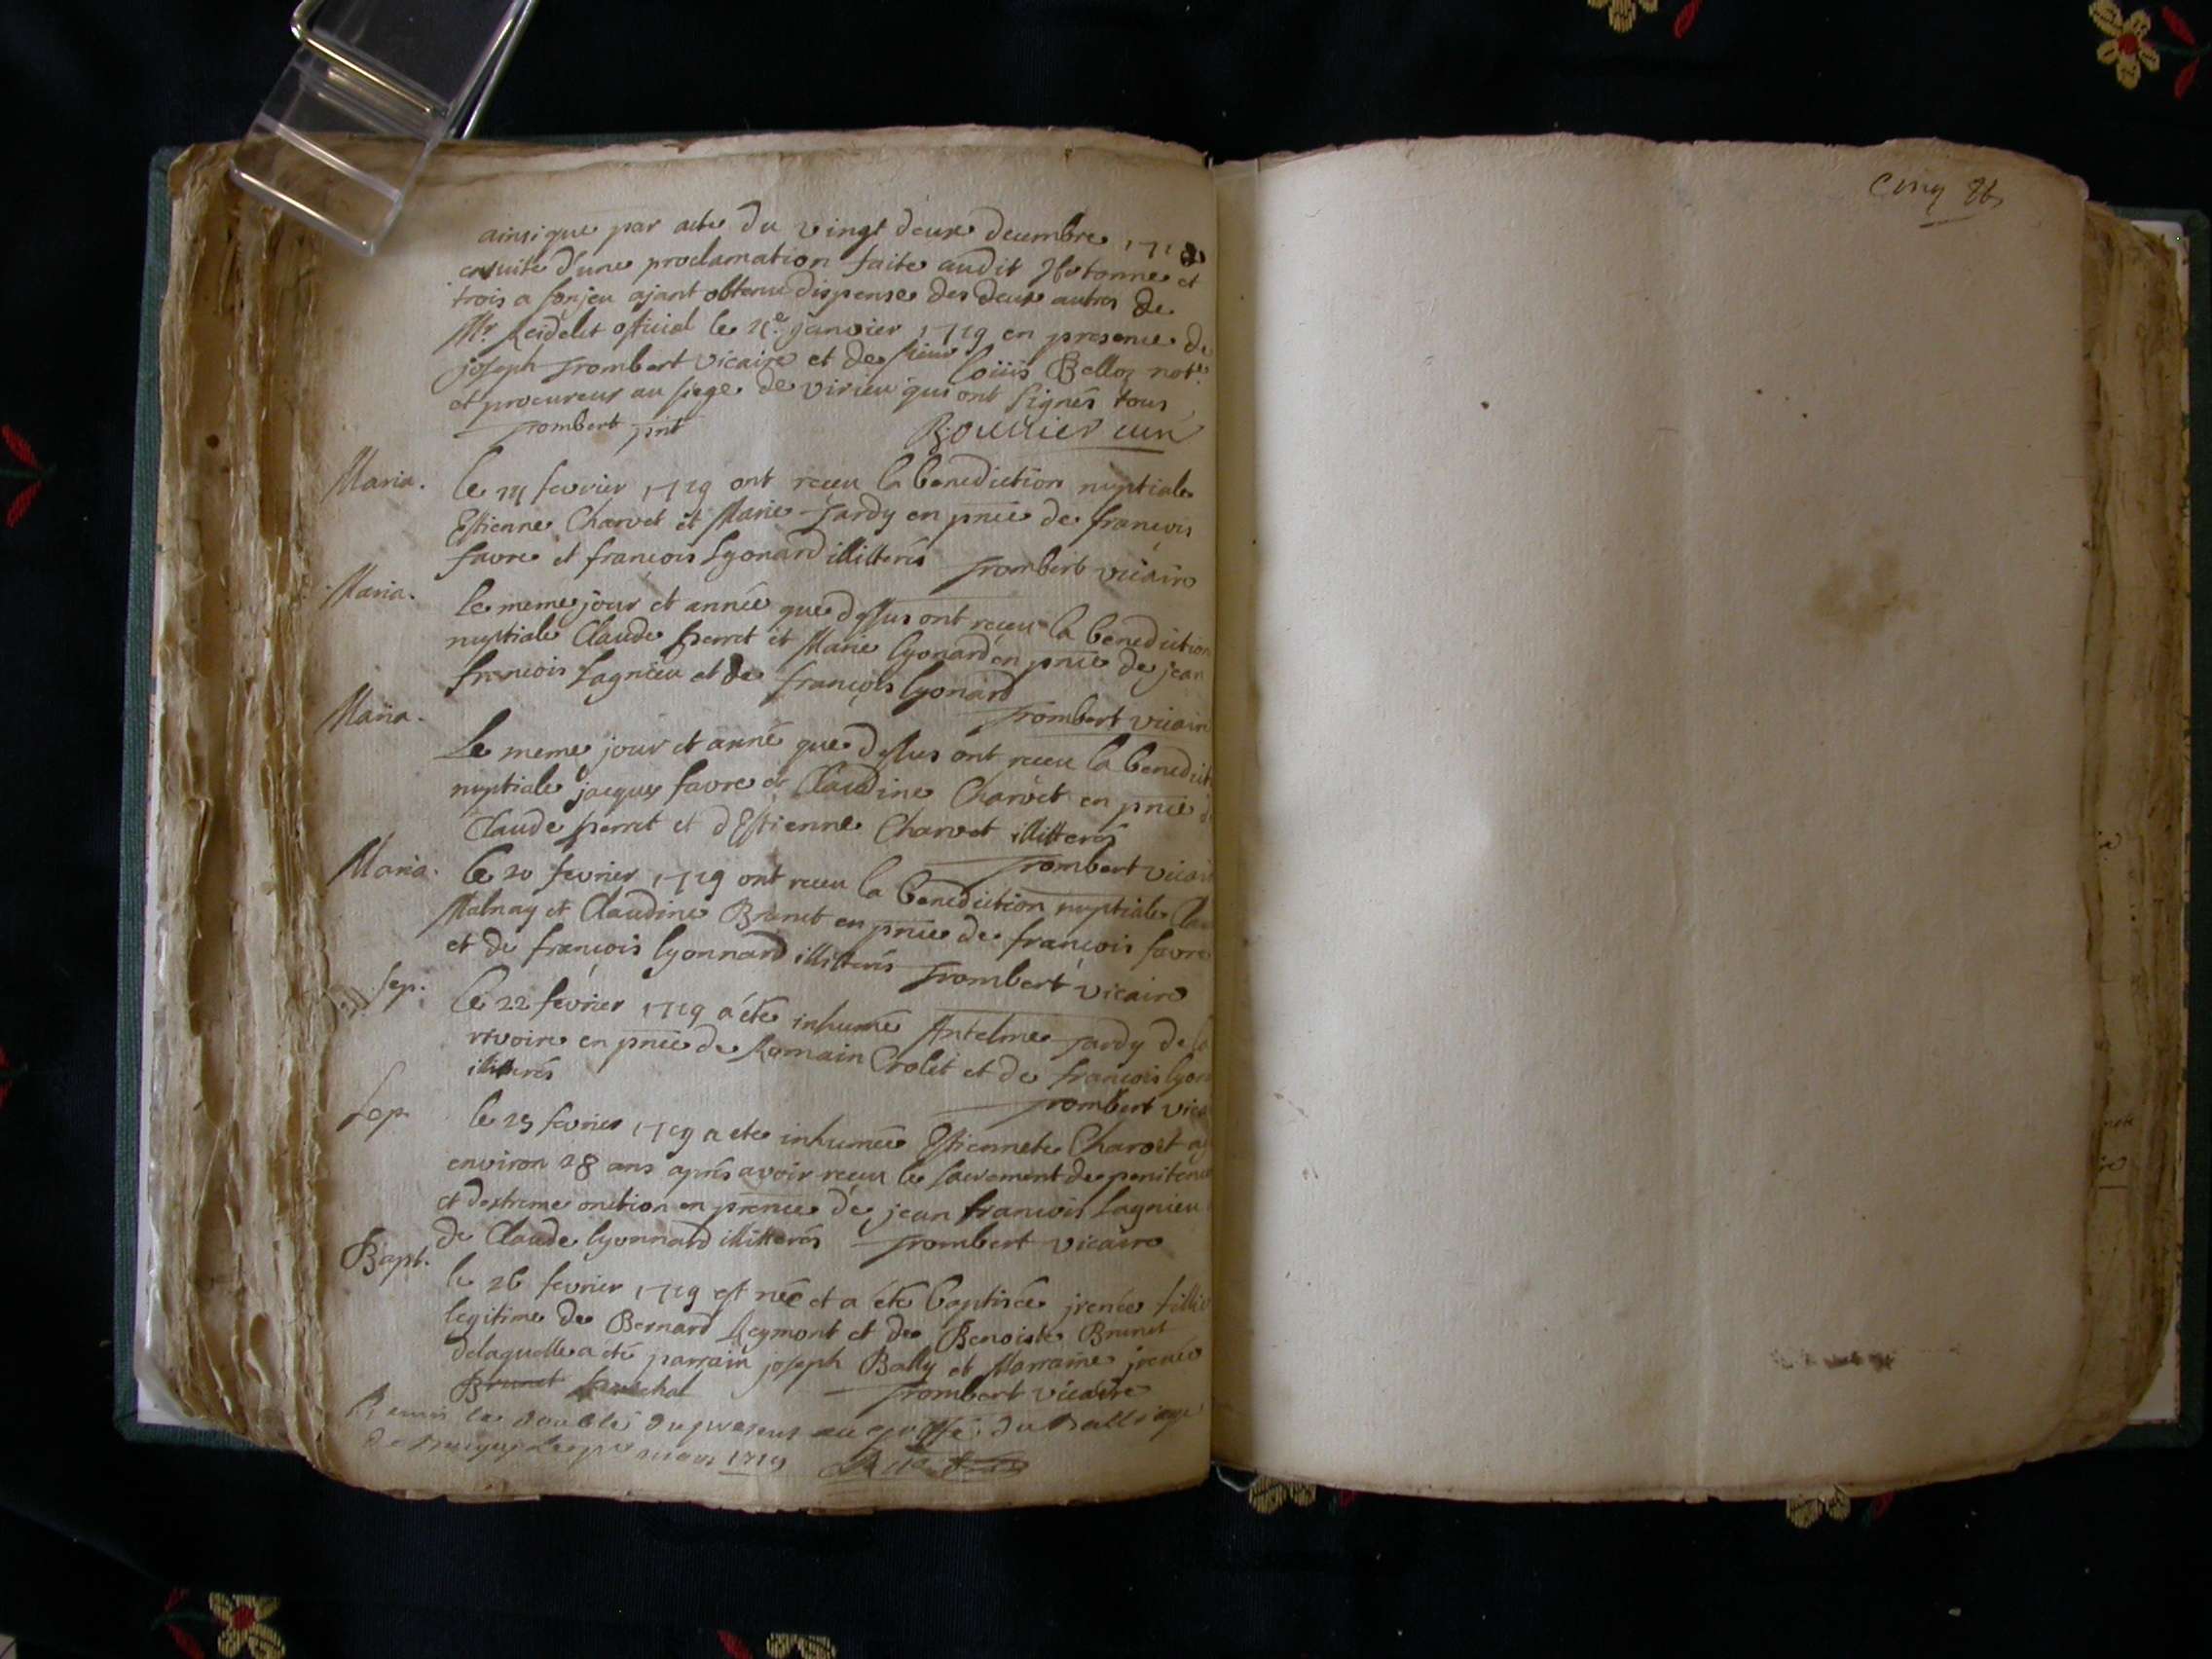 ainsi que par acte du vingt deux decembre 1718
ensuite d'une proclamation faite audit et
trois a Sonjeu ajant obtenu dispense des deux autres de
Mr. official le janvier 1719 en presence de
joseph Trombert vicaire et de sieur loüis Belloz notre
et procureur au siege de virieu qui ont signés tous
Trombert curé
Maria.
le fevrier 1719 ont receu la benediction nuptiale
Estienne Charvet et Marie Tardy en pnce de françois
favre et françois Lyonard illitterés Trombert vicaire
Maria.
le meme jour et année que dessus ont receu la benediction
nuptiale Claude perret et Marie lyonard en pnce de jean
francois Lagnieu et de françois lyonard
Trombert vicair
Maria.
Le meme jour et anné que dessus ont receu la benedicti
nuptiale jacques favre et Claudine Charvet en pnce d
Claude perret et dEstienne Charvet illitterés
Trombert vicair
Maria.
le 20 fevrier 1719 ont receu la benediction nuptiale Clau
Malnay et Claudine Brunet en pnce de françois favre
et de françois lyonnard illitterés Trombert vicaire
sep.
le 22 fevrier 1719 a été inhumé Antelme Tardy de la
rivoire en pnce de Romain Crolet et de francois lyon
illitterés
Trombert vica
sep.
le 25 fevrier 1719 a ete inhumée Estiennete Charvet ag
environ 28 ans aprés avoir receu le sacrement de penitence
et dextreme onction en presence de jean francois Lagnieu
de Claude lyonnard illitterés Trombert vicaire
Bapt.
le 26 fevrier 1719 est née et a été baptisée jrenée fillie
legitime de Bernard Reymont et de Benoiste Brunet
delaquelle a été parrain joseph Bally et Marraine jrenée
Brunet Trombert vicaire
Remis le double du present au greffe du Balliage
de mars 1719
Cinq